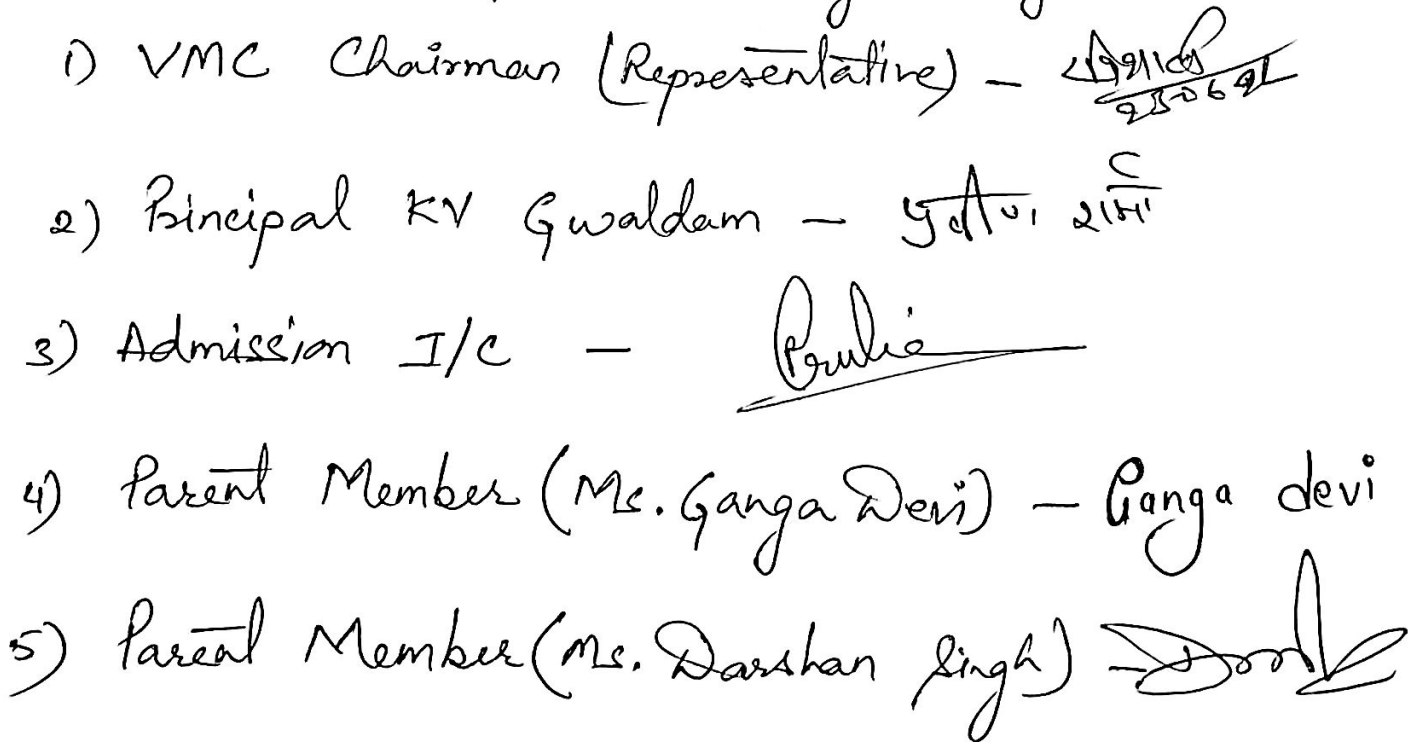 1) VMC Chairman (Representative) -
2) Principal KV Gwaldam - शर्मा
3) Admission I/C -
4) Parent Member (Ms. Ganga Devi) - Ganga devi
5) Parent Member (Ms. Darshan Singh) -